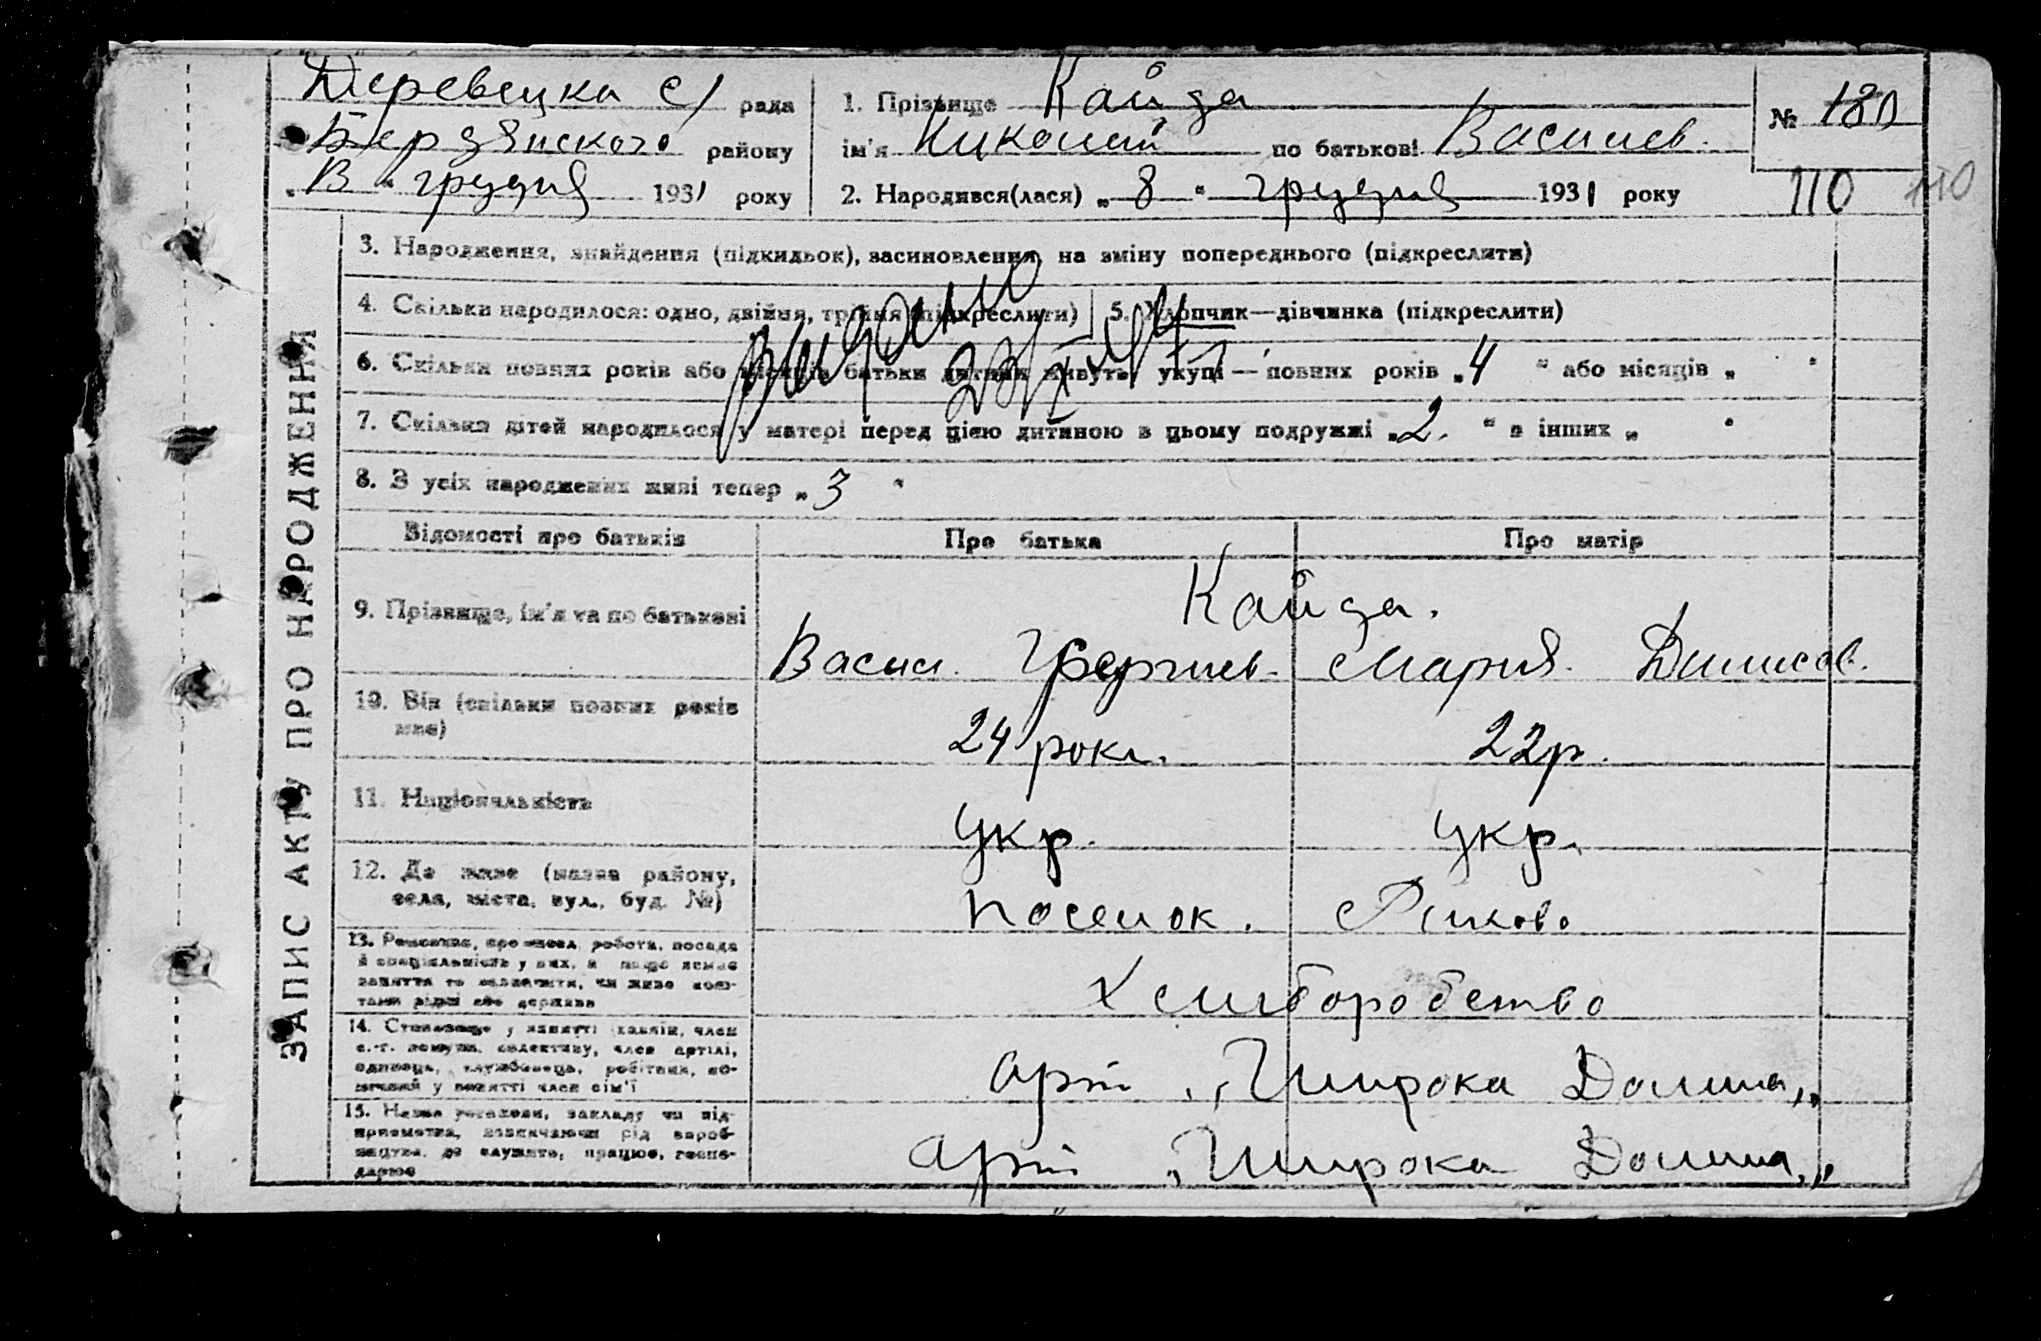 Деревецка с/ рада
Бердянского району
„ В “ грудня 1931 року
1. Прізвище Кайда
ім'я Николай по батькові Васильев.
2. Народився(лася) „ 8 “ грудня 1931 року
№ 180
110 110
ЗАПИС АКТУ ПРО НАРОДЖЕННЯ
3. Народження, знайдення (підкидьок), засиновлення, на зміну попереднього (підкреслити)
4. Скільки народилося: одно, двійня, трійня (підкреслити)
5. Хлопчик—дівчинка (підкреслити)
Видано
6. Скільки повних років або місяців батьки дитини живуть укупі — повних років „ 4 “ або місяців „ “
7. Скільки дітей народилося у матері перед цією дитиною в цьому подружжі „ 2. “ в інших „ “
8. З усіх народжених живі тепер „ 3 “
Відомості про батьків Про батька Про матір
9. Прізвище, ім'я та по батькові
Кайда.
Васил. Григев. Мария. Данилов.
10. Вік (скільки повних років має)
24 роки. 22р.
11. Національність
Укр. Укр.
12. Де живе (назва району, села, міста, вул., буд. №)
поселок. Риково
13. Ремество, промисел, робота, посада
й спеціяльність у них, а якщо немає
заняття то зазначити, чи живе кош-
тами рідні або держави
Хлиборобство
14. Становище у занятті (хазяїн, член
с.-г. комуни, колективу, член артілі,
одинець, службовець, робітник, до-
помічний у занятті член сім'ї
арт. „Широка Долина„
15. Назва установи, закладу чи під-
приємства, зазначаючи рід вироб-
ництва, де служить, працює, госпо-
дарює
арт „Широка Долина„